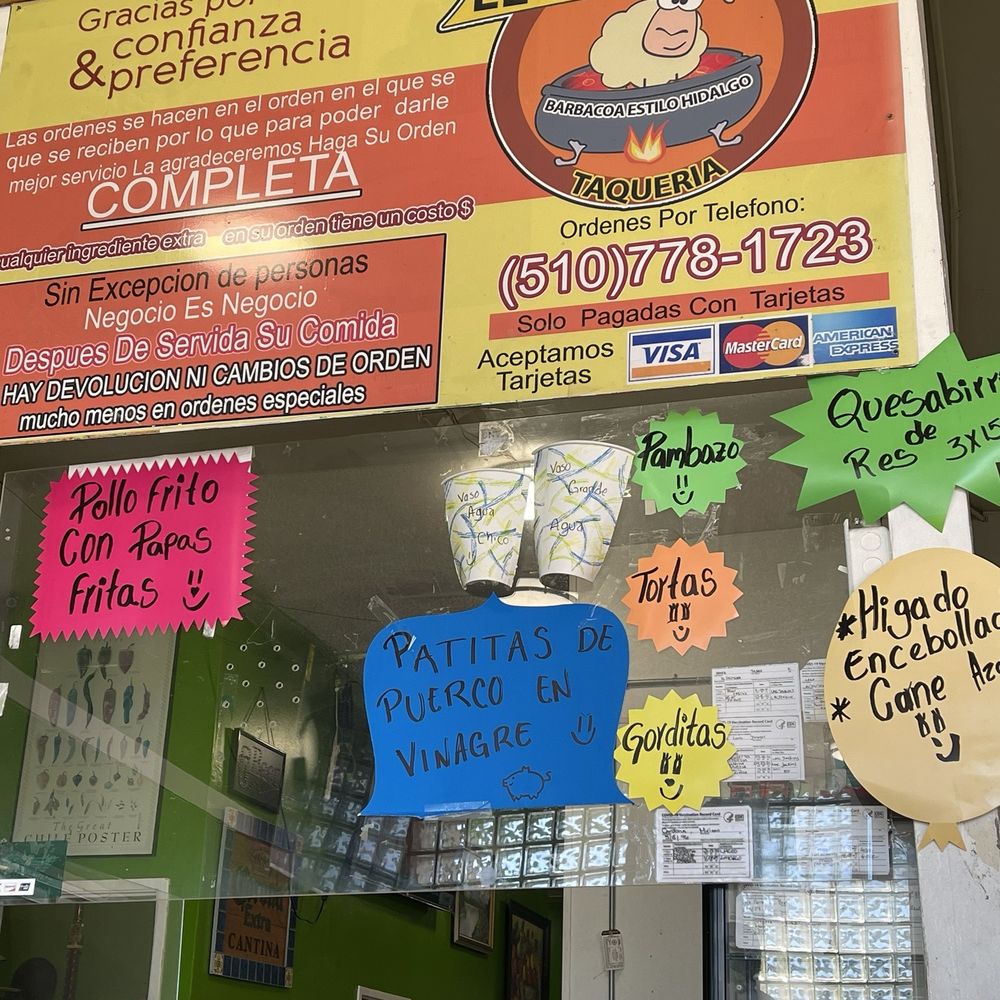 Gracias por
confianza
& preferencia
Las ordenes se hacen en el orden en el que se
que se reciben por lo que para poder darle
mejor servicio La agradeceremos Haga Su Orden
COMPLETA
ualquier ingrediente extra en su orden tiene un costo $
Sin Excepcion de personas
Negocio Es Negocio
Despues De Servida Su Comida
HAY DEVOLUCION NI CAMBIOS DE ORDEN
mucho menos en ordenes especiales
BARBACOA ESTILO HIDALGO
TAQUERIA
Ordenes Por Telefono:
(510)778-1723
Solo Pagadas Con Tarjetas
Aceptamos
Tarjetas
VISA
MasterCard
AMERICAN
EXPRESS
Quesabirr
de
Res 3x15
Pollo frito
Con Papas
fritas
Vaso
Agua
Chico
Vaso
Grande
Agua
Pambazo
Tortas
PATITAS DE
PUERCO EN
VINAGRE
Gorditas
*Higado
Encebollac
* Carne Aza
The Great
CHILE POSTER
Extra
CANTINA
COVID-19 Vaccination Record Card
COVID-19 Vaccination Record Card